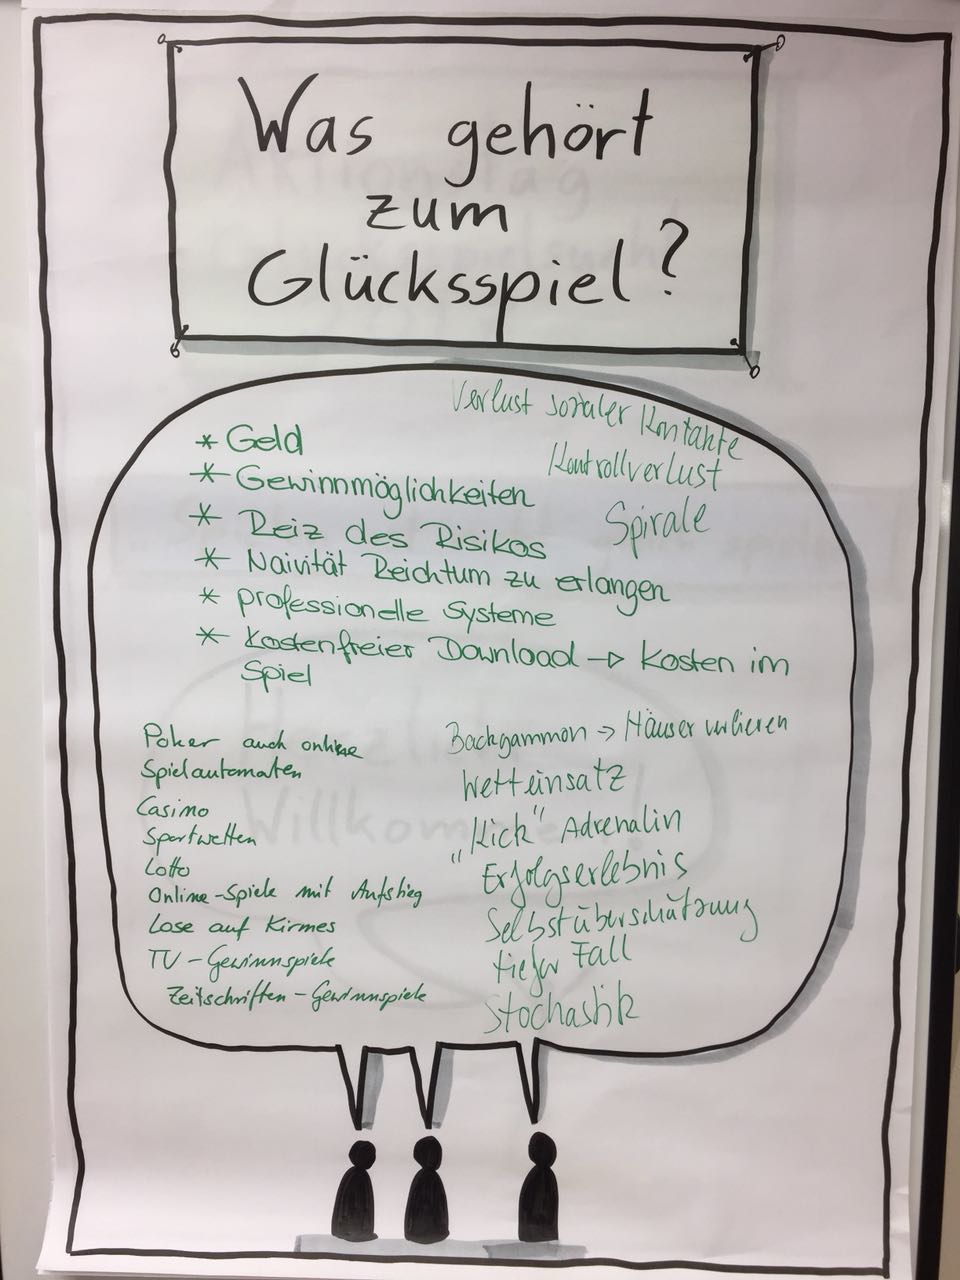 Was gehört
zum
Glücksspiel?
Verlust sozialer Kontakte
Kontrollverlust
Spirale
* Geld
* Gewinnmöglichkeiten
* Reiz des Risikos
* Naivität Reichtum zu erlangen
* professionelle Systeme
* Kostenfreier Download → Kosten im
Spiel
Poker auch online
Spielautomaten
Casino
Sportwetten
Lotto
Online-Spiele mit Aufstieg
Lose auf Kirmes
TV-Gewinnspiele
Zeitschriften-Gewinnspiele
Backgammon → Häuser verlieren
Wetteinsatz
"Kick" Adrenalin
Erfolgserlebnis
Selbstüberschätzung
tiefer Fall
Stochastik